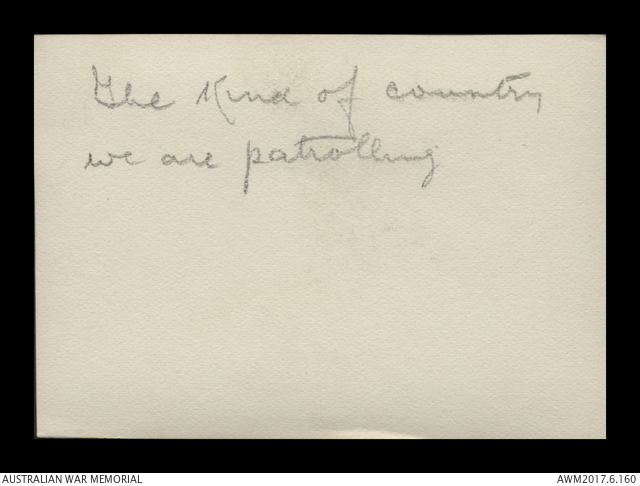 The kind of country
we are patrolling
AUSTRALIAN WAR MEMORIAL
AWM2017.6.160